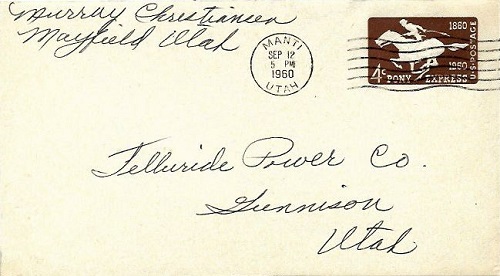 Murray Christiansen
Mayfield Utah
MANTI
SEP 12
5 PM
1960
UTAH
1860
1960
U.S. POSTAGE
4¢ PONY EXPRESS
Telluride Power Co.
Gunnison
Utah